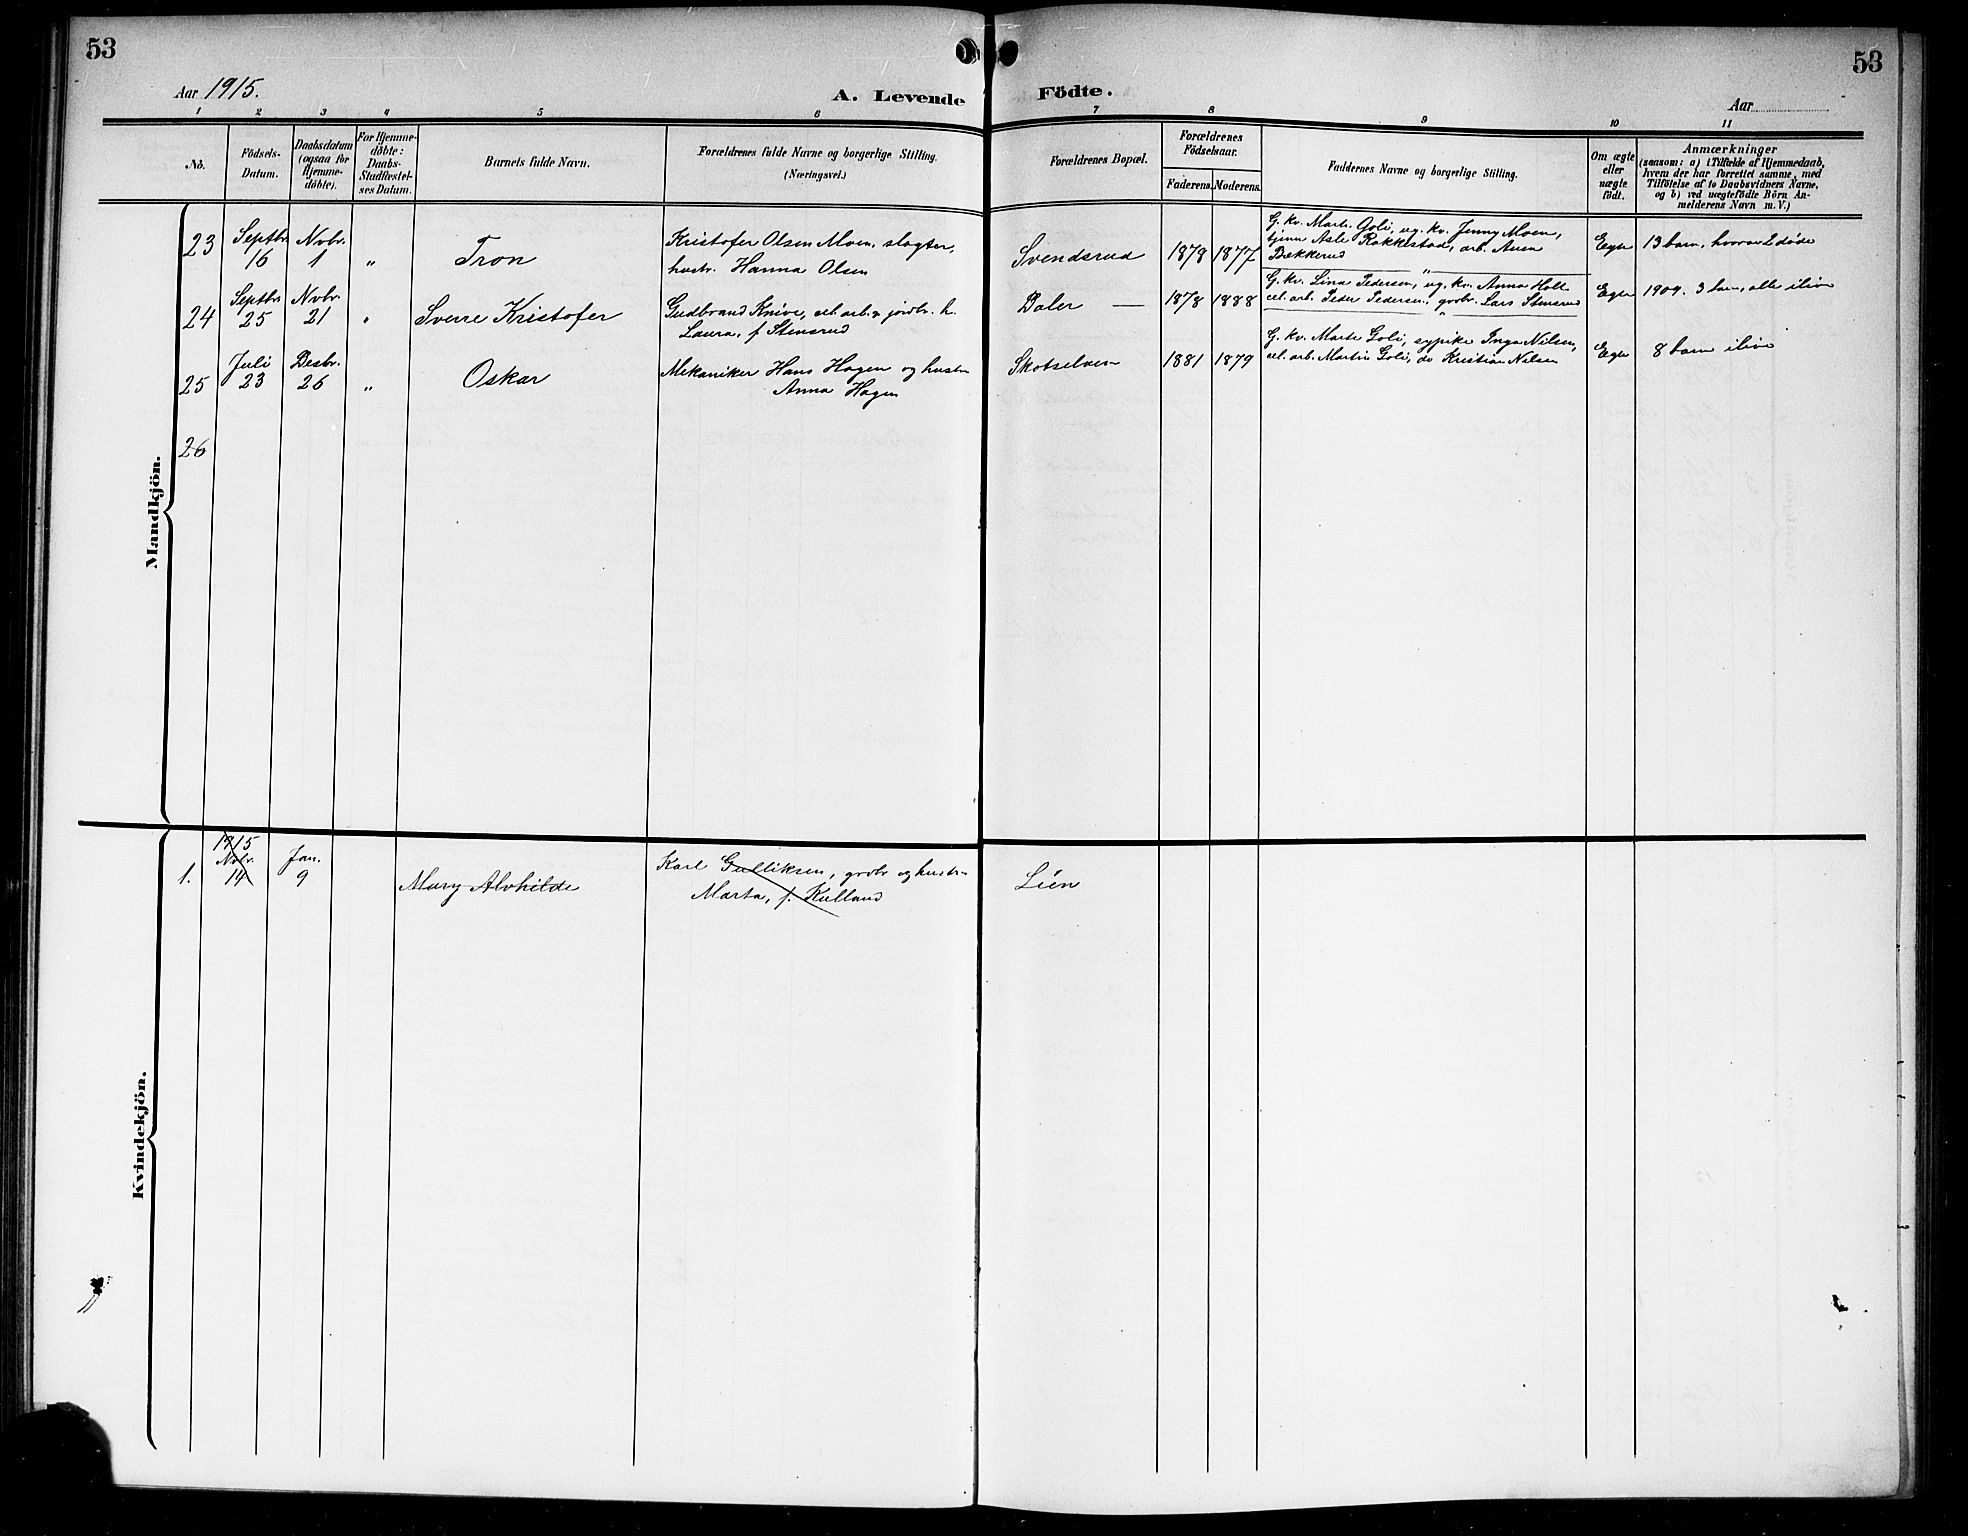 53
53
Aar 1915.
A. Levende Födte.
Aar
1 2 3 4 5 6 7 8 9 10 11
No.
Födsels-
Datum.
Daabsdatum
(ogsaa for
Hjemme-
döbte).
For Hjemme-
döbte:
Daabs-
Stadfæstel-
ses Datum.
Barnets fulde Navn.
Forældrenes fulde Navne og borgerlige Stilling.
(Næringsvei.)
Forældrenes Bopæl.
Forældrenes
Födselsaar.
Faderens.
Moderens.
Faddernes Navne og borgerlige Stilling.
Om ægte
eller
uægte
født.
Anmærkninger
(saasom: a) i Tilfælde af Hjemmedaab,
hvem der har forrettet samme, med
Tilföielse af to Daabsvidners Navne,
og b) ved uegtefödte Börn An-
melderens Navn m. V.)
Mandkjön.
23
Septbr.
16
Novbr.
1
"
Tron
Kristofer Olsen Moen, slagter,
hustr. Hanna Olsen
Svendsrud
1878
1877
G. kv. Marte Goli, ug. kv. Jenny Moen,
tjener Asle Rakkestad, arb. Anen
Bækkerud
Egte
13 barn, hvorav 2 døde
24
Septbr.
25
Novbr.
21
"
Sverre Kristofer
Gudbrand Knive, cel. arb. & jordbr. h.
Laura, f Stensrud
Daler
1878
1888
G. kv. Lina Pedersen, ug. kv. Anna Holt
cel. arb. Peder Pedersen, grdbr. Lars Stensrud
Egte
1909. 3 barn, alle ilive
25
Juli
23
Desbr.
26
"
Oskar
Mekaniker Hans Hagen og hustr
Anna Hagen
Skotselven
1881
1879
G. kv. Marte Goli, sypike Inga Nilsen,
cel. arb. Martin Goli, do Kristian Nilsen
Egte
8 barn ilive
26
Kvindekjön.
1.
1915
Novbr.
14
Jan.
9
Mary Alvhilde
Karl Gulliksen, grdbr og hustr
Marta, f. Kulland
Lien